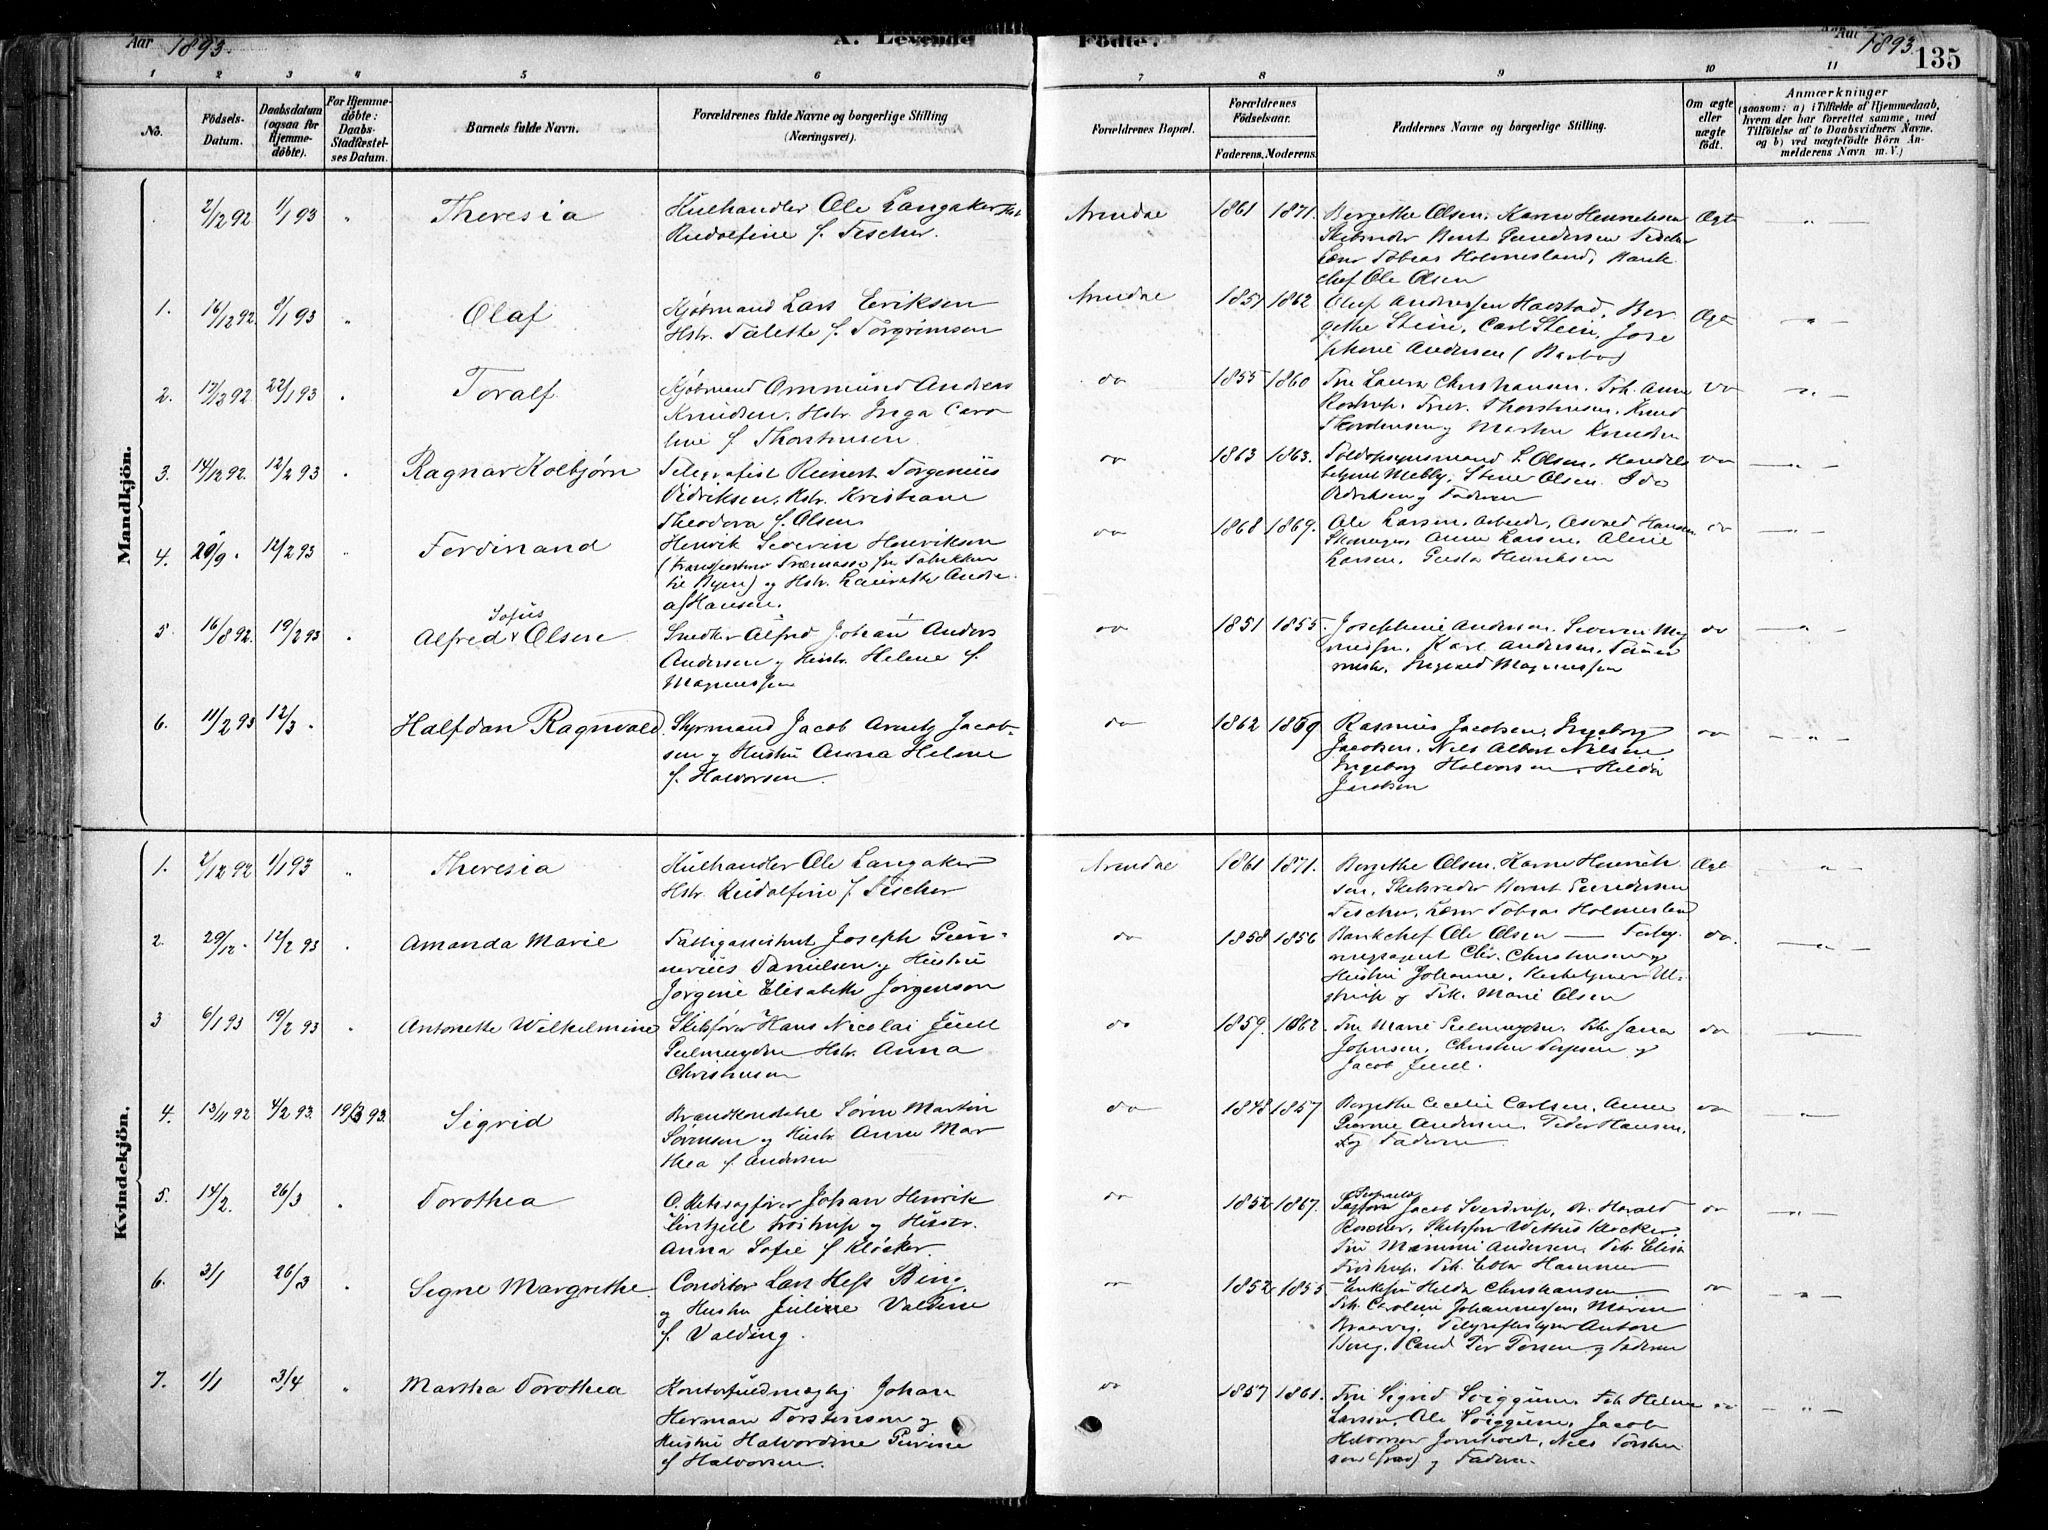 Aar 1893. A. Levende Födte. Aar 1893. 135
1 2 3 4 5 6 7 8 9 10 11
No.
Födsels-
Datum.
Daabsdatum
(ogsaa for
Hjemme-
döbte).
For Hjemme-
döbte:
Daabs-
Stadfæstel-
ses Datum.
Barnets fulde Navn.
Forældrenes fulde Navne og borgerlige Stilling
(Næringsvei).
Forældrenes Bopæl.
Forældrenes
Födselsaar.
Faderens. Moderens.
Faddernes Navne og borgerlige Stilling.
Om ægte
eller
uægte
födt.
Anmærkninger
(saasom: a) i Tilfælde af Hjemmedaab,
hvem der har forrettet samme, med
Tilföielse af to Daabsvidners Navne.
og b) ved uægtefödte Börn An-
melderens Navn m. V.)
Mandkjön.
2/12 92 1/1 93 " Theresia
Kulhandler Ole Langaker Hst.
Rudolfine f. Fischer.
Arendal 1861 1871.
Bergethe Olsen, Karen Henriksen
Skibsreder Bernt Gundersen Fischer
Lærer Tobias Holmesland, Bank
chef Ole Olsen
Ægte "
1. 16/12 92. 8/1 93 " Olaf
Kjøbmand Lars Eriksen
Hstr. Talette f. Torgrimson
Arendal 1851 1862
Oluf Andressen Havstad, Ber
gethe Stein, Carl Stein, Jose
phine Andersen (Barbo)
Ægte "
2. 17/12 92 22/1 93 " Toralf
Kjøbmand Ommund Andreas
Knudsen, Hstr. Inga Caro
line f. Thorstensen.
do 1855 1860
Fru Laura Christiansen, Frk. Anna
Rostrup,
Knudsen
do "
3. 14/12 92. 12/2 93 " Ragnar Kolbjørn
Telegrafist Reinert Torgenius
Didriksen, Hstr. Kristiane
Theodora f. Olsen
do 1863 1863.
Toldopsynsmand L. Olsen, Handels
betjent Melby, Stine Olsen. Ida
Didriksen og Faderen
do "
4. 20/9 " 12/2 93 " Ferdinand
Henrik Severin Henriksen
(transporterer Træmasse fra Fabrikken
til Byen) og Hstr. Laurathe Andre
a f Hansen.
do 1868 1869.
Ole Larsen, Arbeidr, Osvald Hansen
Skomager, Anna Larsen, Aline
Larsen, Gusta Henriksen
do "
5. 16/8 92. 19/2 93 " Sofus
Alfred Olsen
Snedker Alfred Johan Anders
Andersen og Hustr. Helene f.
Magnussen
do 1851 1855
Josephine Andersen, Severin Mag
nussen, Karl Andersen, Tømmer
mester, Ingvald Magnussen
do "
6. 11/2 93 12/3 " Halfdan Ragnvald
Styrmand Jacob Arntz Jacob-
sen og Hustru Anna Helene
f. Halvorsen.
do 1862 1869
Rasmus Jacobsen, Ingeborg
Jacobsen, Nils Albert Nilsen
Ingeborg Halvorsen, Hilda
Jacobsen
do "
Kvindekjön.
1. 2/12 92 1/1 93 " Theresia
Kulhandler Ole Langaker
Hstr. Rudolfine f. Fischer
Arendal 1861 1871.
Bergethe Olsen, Karen Henrik
sen, Skibsreder Bernt Gundersen
Fischer, Lærer Tobias Holmesland
Ægte "
2. 29/12 " 12/2 93 " Amanda Marie
Fattigassistent Joseph Gun-
nerius Danielsen og Hustru
Jørgine Elisabeth Jørgenson
do 1858 1856
Bankchef Ole Olsen — Forsy
ningsagent Chr. Christensen og
Hustru Johanne,
og Frk. Marie Olsen
do. "
3 6/1 93 19/2 93 " Antonette Wilhelmine
Skibsfører Hans Nicolai Juell
Gulmeyden Hstr. Anna
Christensen
do 1859. 1862
Fru Marie Gulmeyden, Frk. Jana
Johnsen, Christen Torpsen og
Jacob Juell.
do "
4. 13/11 92 4/2 93. 19/3 93. Sigrid
Brandkonstabel Søren Martin
Sørensen og Hustr. Anne Mar
thea f. Andersen
do 1848 1857
Bergethe Cecelie Carlsen, Anne
Andersen, Peder Hansen,
og Faderen.
do "
5. 14/2. 26/3 " Dorothea
O. Retssagfører Johan Henrik
Frøstrup og Hustr.
Anna Sofie f Kløcker.
do 1852 1867.
Jacob Sverdrup, Harald
Skibsfører Kløcker,
Fru Mammi Andersen, Frk. Elisa
Frøstrup, Frk. Hammer
do "
6. 3/1 26/3 " Signe Margrethe
Conditor Lars Hess Bing
og Hustru Juline Valdine
f. Valding.
do 1852 1855
Enkefru Hilda Christiansen
Frk. Caroline Johannessen, Maren
Braarvig, Telegrafbestyrer Antore
Bing, Cand Per Torsen og Faderen
do "
7. 1/1 3/4 " Martha Dorothea
Kontorfuldmægtig Johan
Herman Torstensen og
Hustru Halvordine Gurine
f Halvorsen.
do 1857 1861.
Fru Sigrid Soiggum, Frk Helene
Larsen, Ole Soiggum, Jacob
Halvorsen Jomholt, Nils Torsten
sen og Faderen.
do "